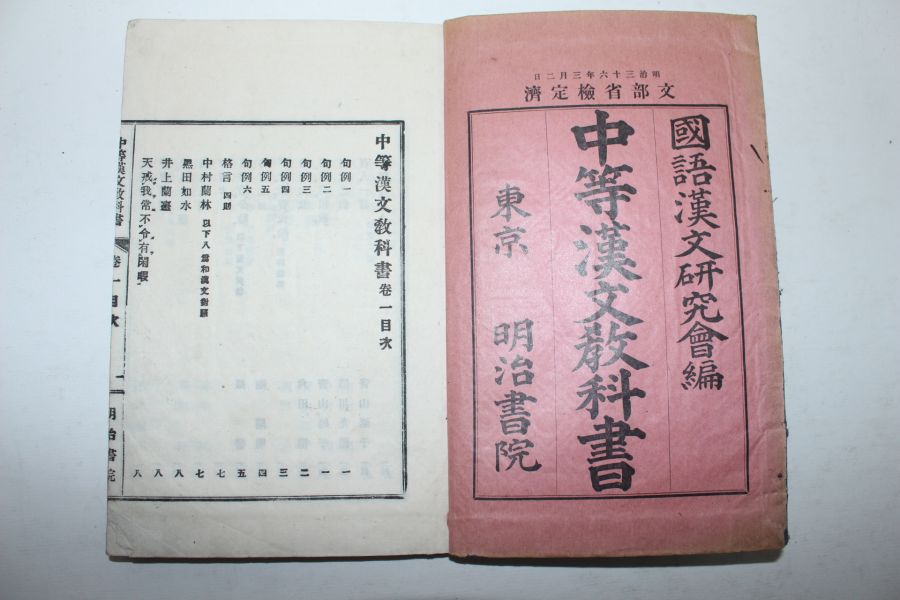 明治三十六年三月二日
文部省檢定濟
國語漢文研究會編
中等漢文敎科書
東京 明治書院
中等漢文敎科書 卷一目次
句例一 一
句例二 一
句例三 二
句例四 三
句例五 四
句例六 五
格言 四則 七
中村蘭林 以下八篇和漢文對照 七
黑田如水 八
井上蘭臺 八
天戒我常不令有閑暇 八
中等漢文敎科書 卷一目次 一 明治書院